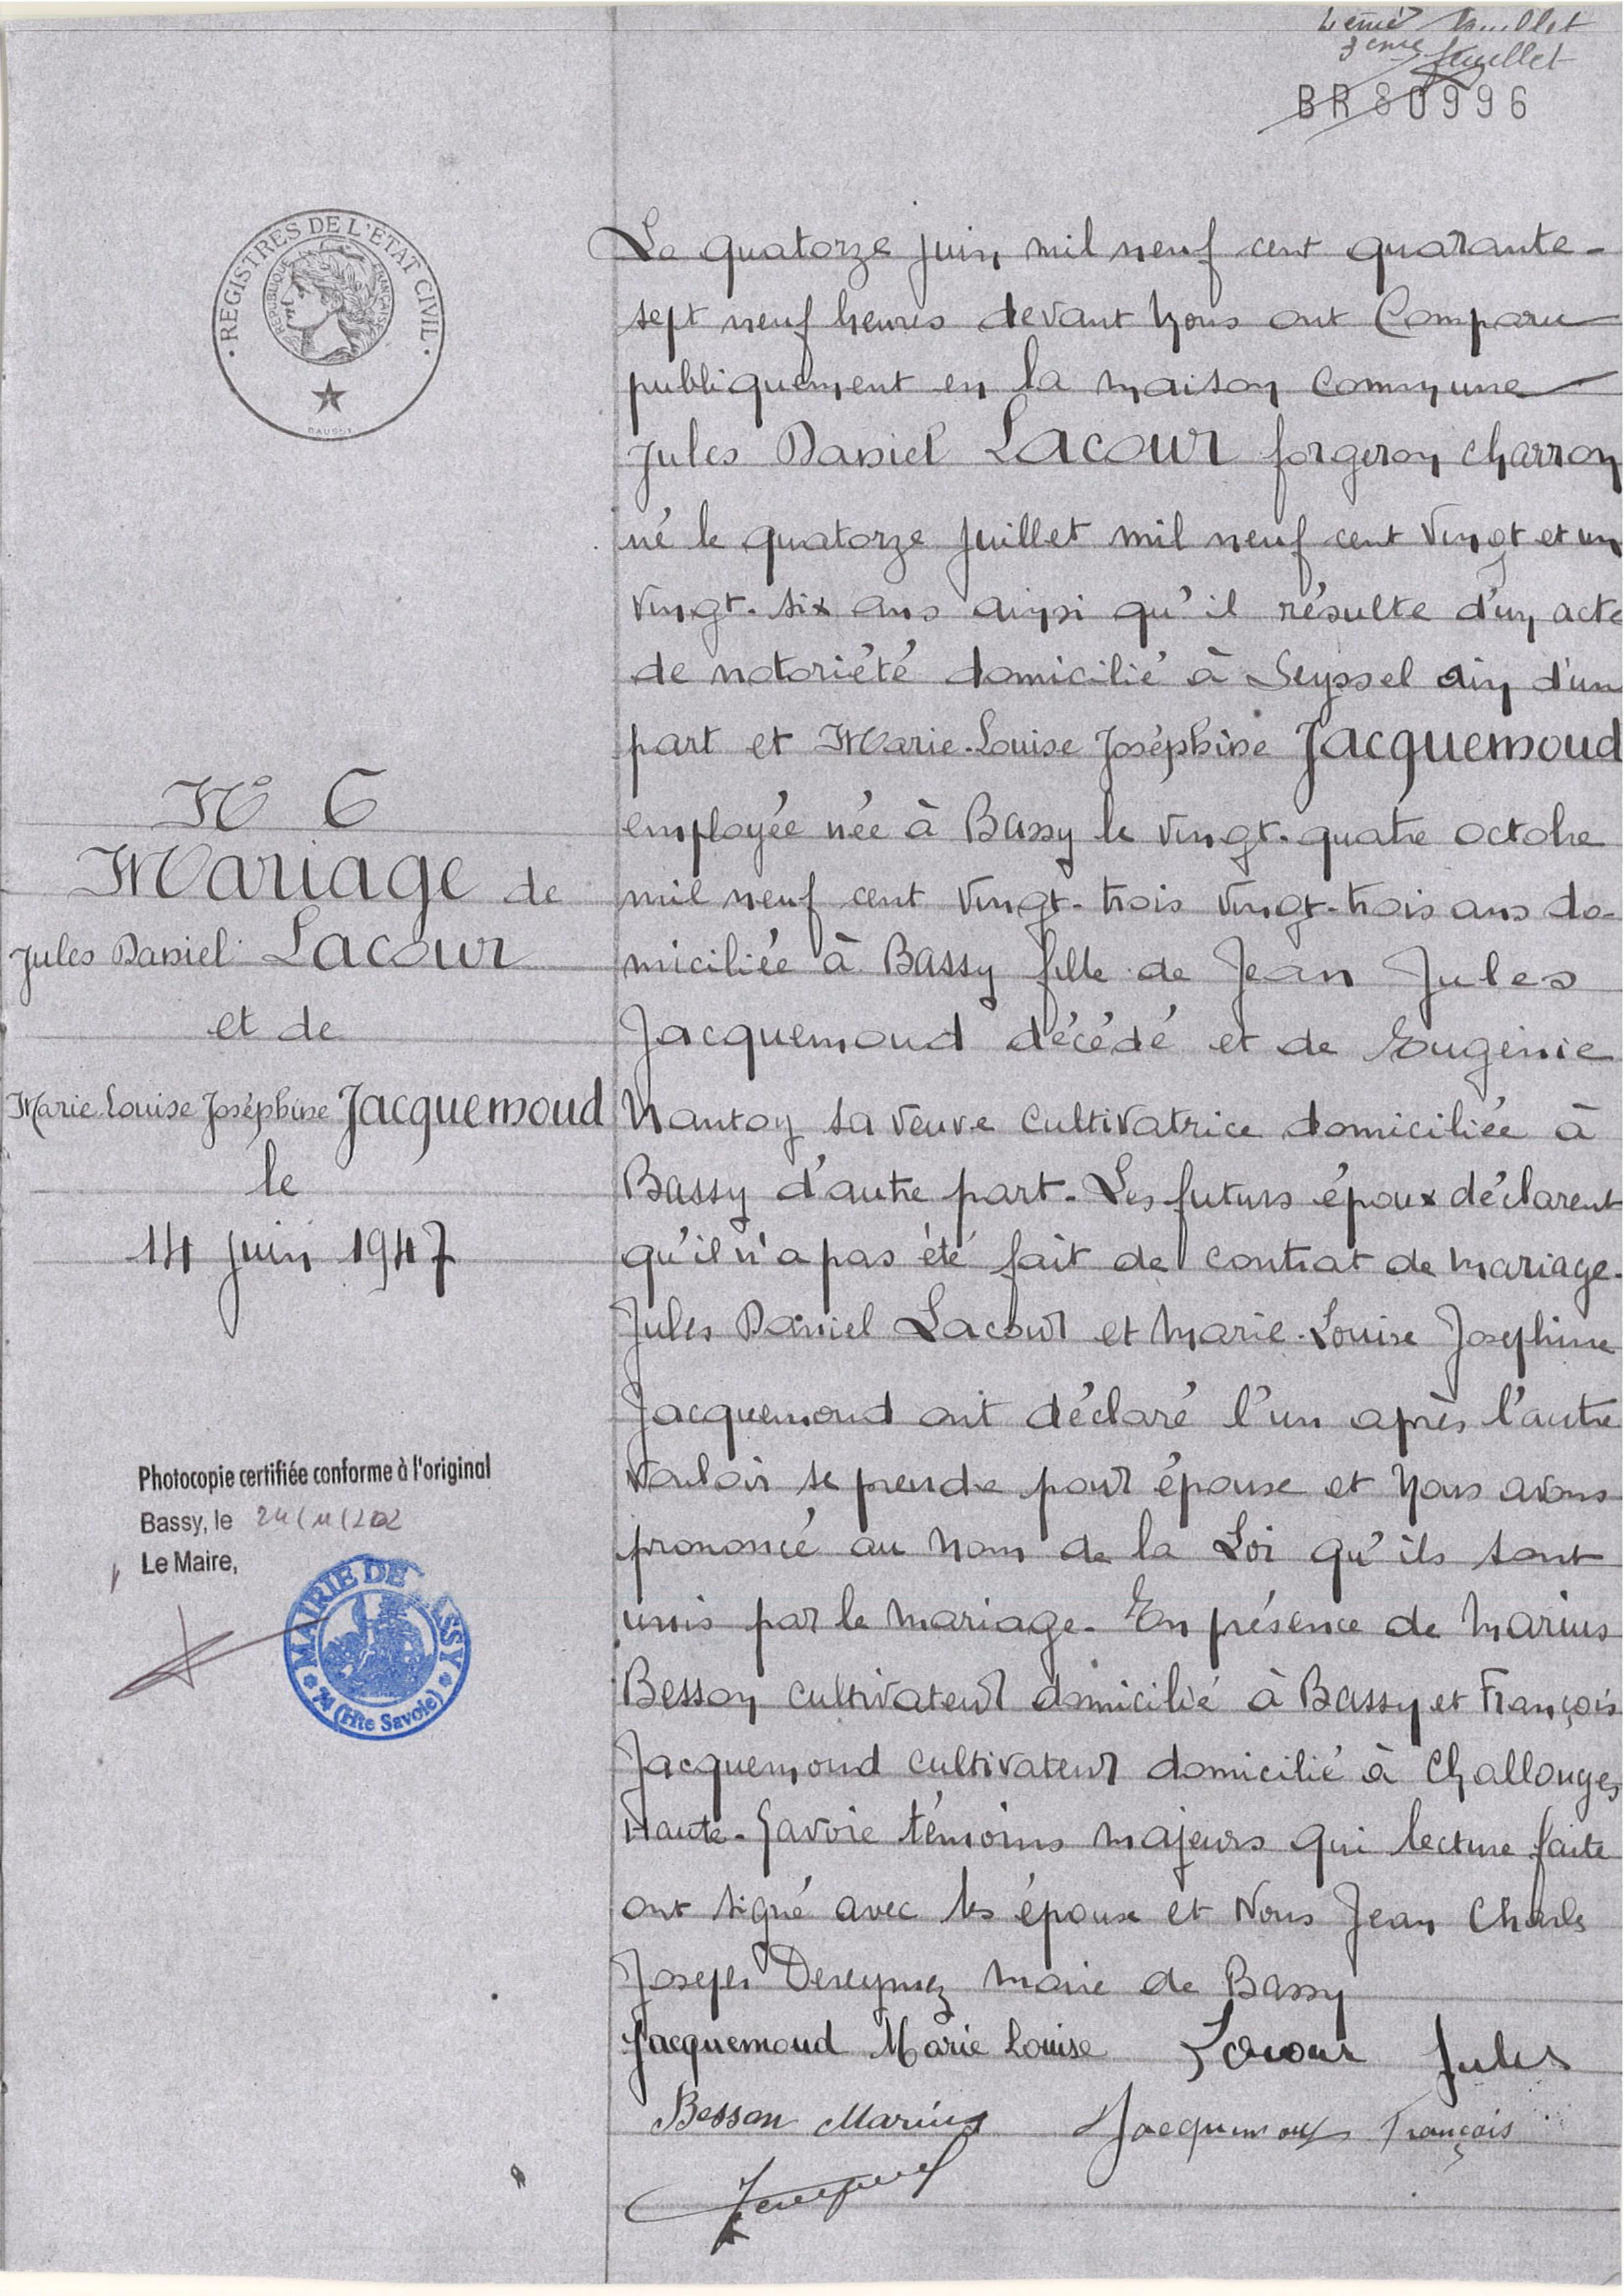 4ème
3ème feuillet
BR 80996
REGISTRES DE L'ETAT CIVIL
REPUBLIQUE FRANÇAISE
Le quatorze juin mil neuf cent quarante-
sept neuf heures devant Nous ont Comparu
publiquement en la maison commune
Jules Daniel Lacour forgeron charron
né le quatorze juillet mil neuf cent vingt et un
vingt-six ans ainsi qu'il résulte d'un acte
de notoriété domicilié à Seyssel ain d'une
part et Marie-Louise Joséphine Jacquemoud
employée née à Bassy le vingt-quatre octobre
mil neuf cent vingt-trois vingt-trois ans do-
miciliée à Bassy fille de Jean Jules
Jacquemoud décédé et de Eugénie
Nanton sa veuve cultivatrice domiciliée à
Bassy d'autre part. Les futurs époux déclarent
qu'il n'a pas été fait de contrat de mariage.
Jules Daniel Lacour et Marie-Louise Josephine
Jacquemoud ont déclaré l'un après l'autre
vouloir se prendre pour épouse et Nous avons
prononcé au nom de la Loi qu'ils sont
unis par le mariage. En présence de Marius
Besson cultivateur domicilié à Bassy et François
Jacquemoud cultivateur domicilié à Challonges
Haute-Savoie témoins majeurs qui lecture faite
ont signé avec les épouse et Nous Jean Charles
Joseph maire de Bassy
Jacquemoud Marie Louise Lacour Jules
Besson Marius Jacquemoud François
N° 6
Mariage de
Jules Daniel Lacour
et de
Marie Louise Joséphine Jacquemoud
le
14 juin 1947
Photocopie certifiée conforme à l'original
Bassy, le
Le Maire,
MAIRIE DE SSY
74 (Hte Savoie)